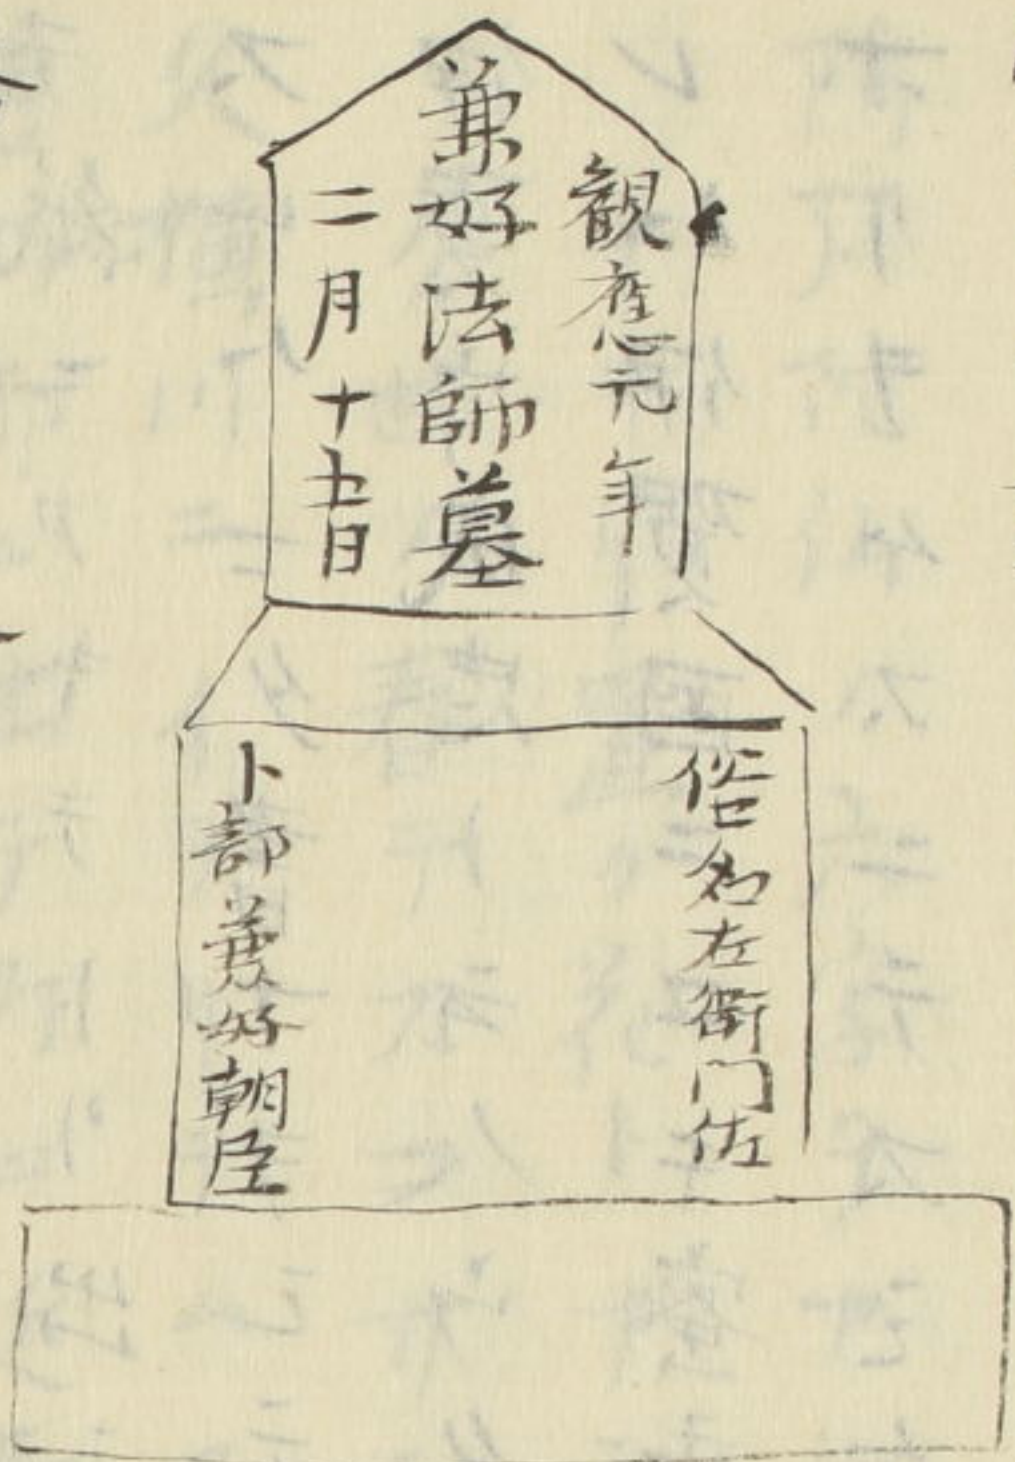 観應元年
兼好法師墓
二月十五日
俗名左衛門佐
卜部兼好朝臣